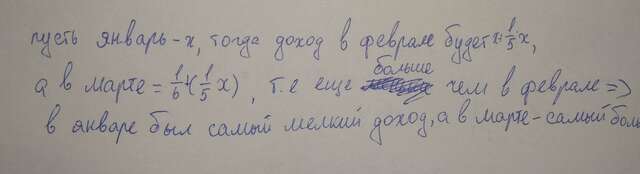 пусть январь - x, тогда доход в феврале будет x+1/5 x,
а в марте = 1/6+(1/5 x), т.е еще больше чем в феврале =>
в январе был самый мелкий доход, а в марте - самый боль